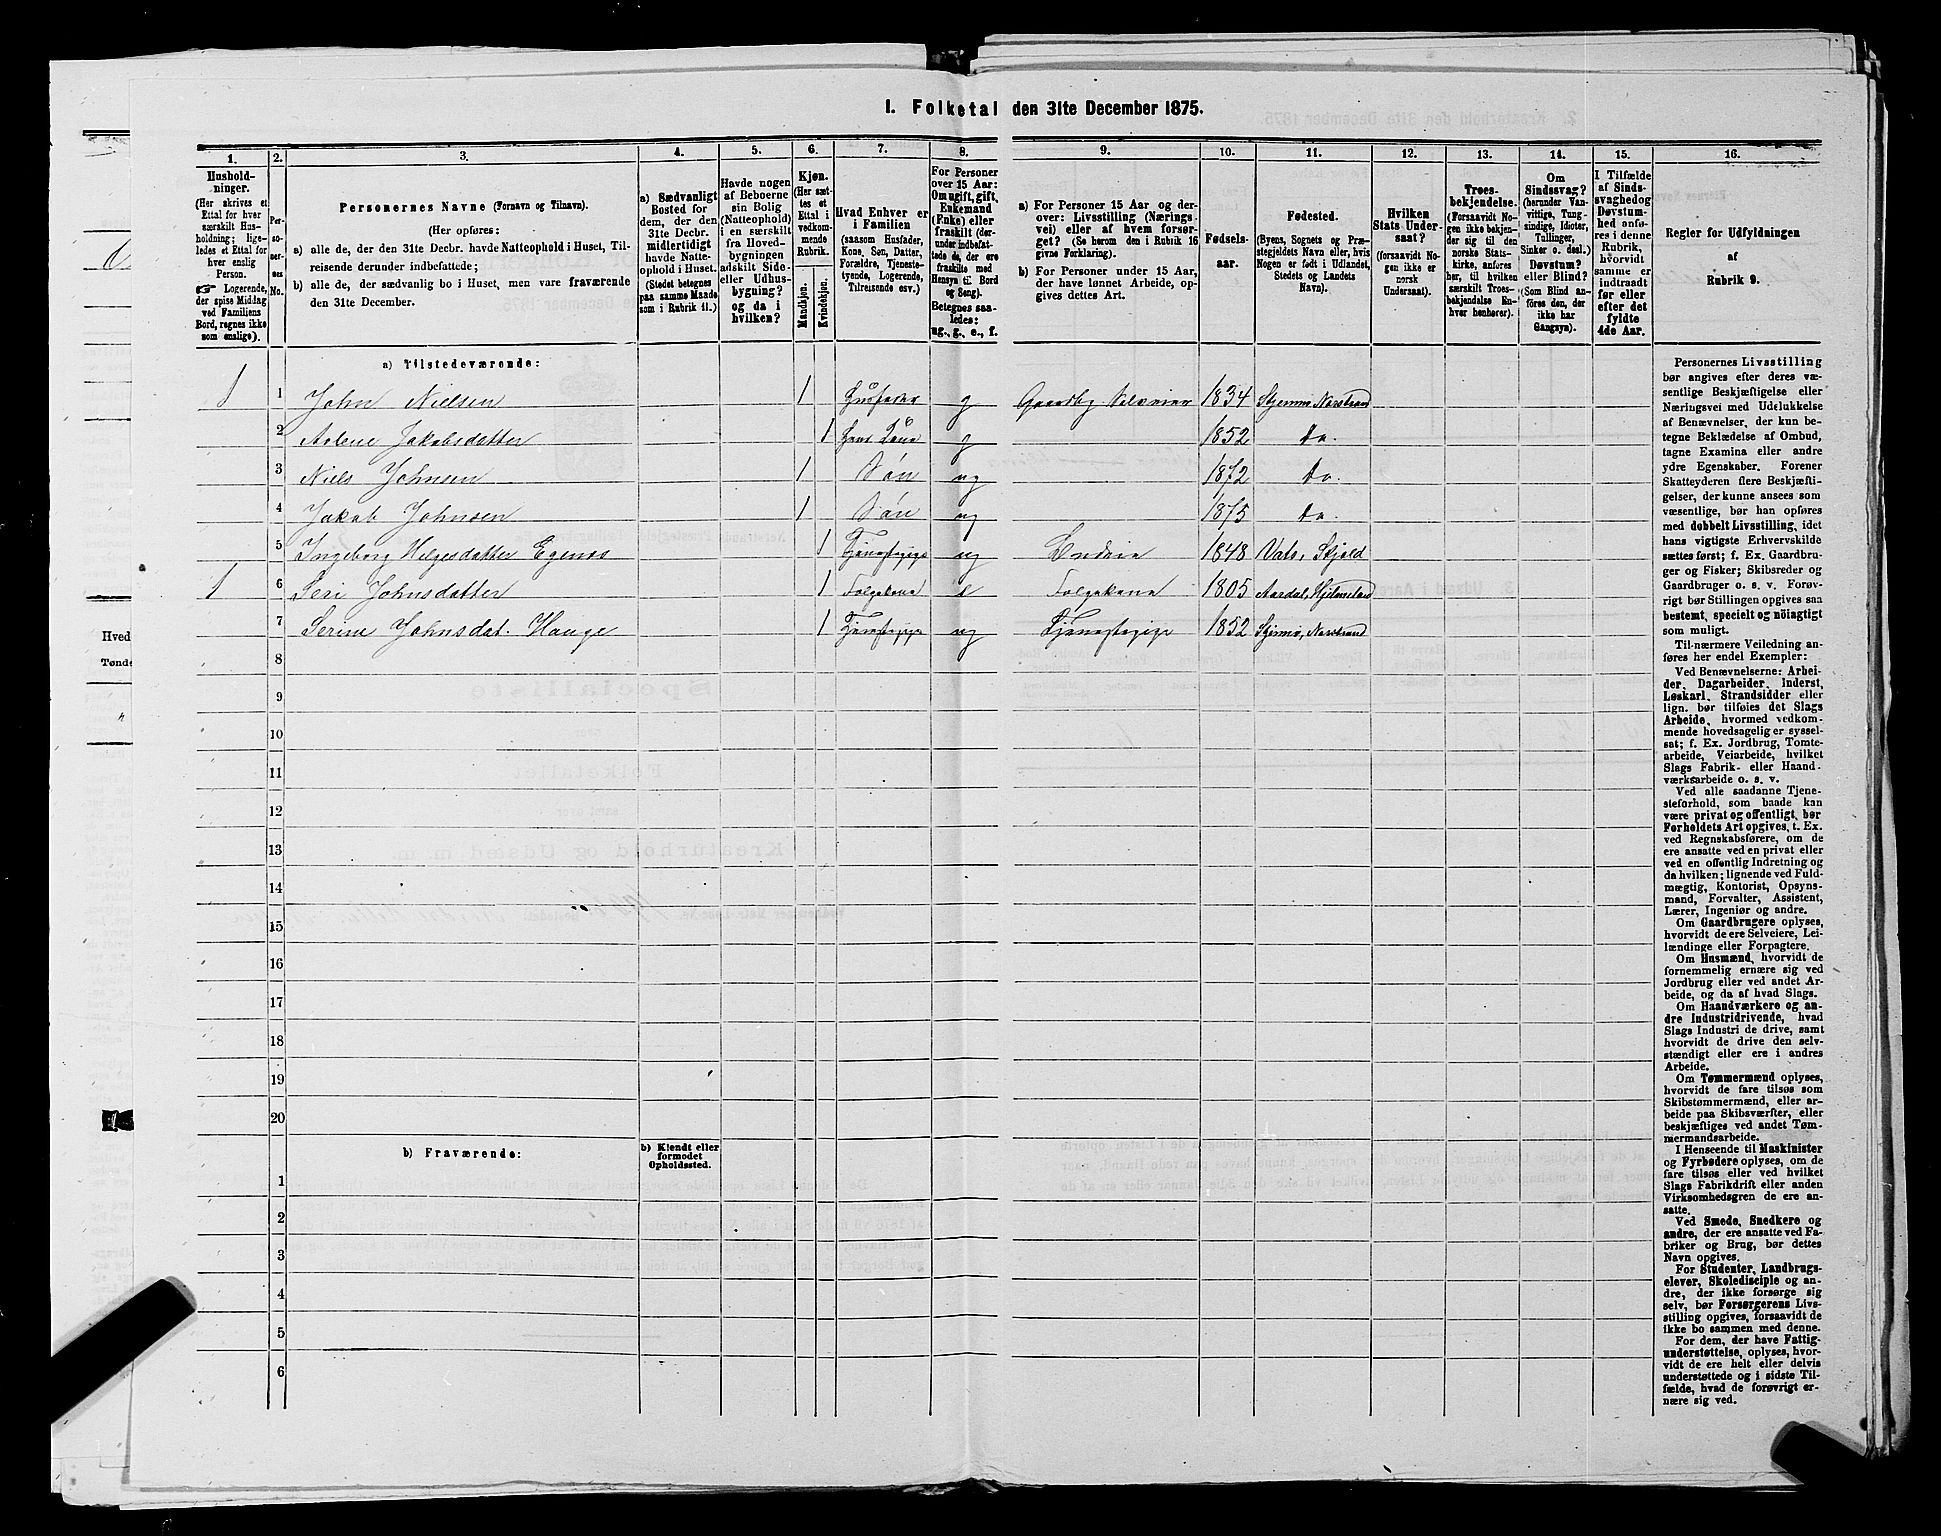 I. Folketal den 31te December 1875.
1. 2. 3. 4. 5. 6. 7. 8. 9. 10. 11. 12. 13. 14. 15. 16.
Hushold-
ninger.
(Her skrives et
Ettal for hver
særskilt Hus-
holdning; lige-
ledes et Ettal for
hver enslig
Person.
☞ Logerende,
der spise Middag
ved Familiens
Bord, regnes ikke
som enslige).
Per-
so-
ner-
nes
No.
Personernes Navne (Fornavn og Tilnavn).
(Her opføres:
a) alle de, der den 31te Decbr. havde Natteophold i Huset, Til-
reisende derunder indbefattede;
b) alle de, der sædvanlig bo i Huset, men vare fraværende
den 31te December.
a) Sædvanligt
Bosted for
dem, der den
31te Decbr.
midlertidigt
havde Natte-
ophold i Huset.
(Stedet betegnes
paa samme Maade
som i Rubrik 11.)
Havde nogen
af Beboerne
sin Bolig
(Natteophold)
i en særskilt
fra Hoved-
bygningen
adskilt Side-
eller Udhus-
bygning?
og da i
hvilken?
Kjøn.
(Her sæt-
tes et
Ettal i
vedkom-
mende
Rubrik.
Mandkjøn.
Kvindekjøn.
Hvad Enhver er
i Familien
(saasom Husfader,
Kone, Søn, Datter,
Forældre, Tjeneste-
tyende, Logerende,
Tilreisende osv.)
For Personer
over 15 Aar:
Om ugift, gift,
Enkemand
(Enke) eller
fraskilt (der-
under indbefat-
tede de, der ere
fraskilte med
Hensyn til Bord
og Seng).
Betegnes saa-
ledes:
ug., g., e., f.
a) For Personer 15 Aar og der-
over: Livsstilling (Nærings-
vei) eller af hvem forsør-
get? (Se herom den i Rubrik 16
givne Forklaring).
b) For Personer under 15 Aar,
der have lønnet Arbeide, op-
gives dettes Art.
Fødsels-
aar.
Fødested.
(Byens, Sognets og Præ-
stegjeldets Navn eller, hvis
Nogen er født i Udlandet,
Stedets og Landets
Navn).
Hvilken
Stats Under-
saat?
(forsaavidt No-
gen ikke er
norsk
Undersaat).
Troes-
bekjendelse.
(Forsaavidt No-
gen ikke bekjen-
der sig til den
norske Stats-
kirke, anføres
her, til hvilken
særskilt Troes-
bekjendelse En-
hver henhører).
Om
Sindssvag?
(herunder Van-
vittige, Tung-
sindige, Idioter,
Tullinger,
Sinker o. desl.)
Døvstum?
eller Blind?
(Som Blind an-
føres den, der
ikke har
Gangsyn).
I Tilfælde
af Sinds-
svaghed og
Døvstum-
hed anfø-
res i denne
Rubrik,
hvorvidt
samme er
indtraadt
før eller
efter det
fyldte
4de Aar.
Regler for Udfyldningen
af
Rubrik 9.
a) Tilstedeværende:
1 1 John Nielsen 1 Husfader g Gaardbg. Selveier 1834 Nerstrand
2 Jakobsdatter 1 Hans Kone g 1852 do.
3 Niels Johnsen 1 Søn ug 1872 do.
4 Jakob Johnsen 1 Søn ug 1875 do.
5 Ingeborg Helgesdatter Egenes 1 Tjenestepige ug 1848 Vats, Skjold
1 6 Seri Johnsdatter 1 Folgekone e Folgekone 1805 Aardal, Hjelmeland
7 Serine Johnsdat. Hauge 1 Tjenestepige ug Tjenestepige 1852 Nerstrand
8
9
10
11
12
13
14
15
16
17
18
19
20
b) Fraværende: b) Kjendt eller
formodet
Opholdssted.
1
2
3
4
5
6
Personernes Livsstilling
bør angives efter deres væ-
sentlige Beskjæftigelse eller
Næringsvei med Udelukkelse
af Benævnelser, der kun be-
tegne Beklædelse af Ombud,
tagne Examina eller andre
ydre Egenskaber. Forener
Skatteyderen flere Beskjæfti-
gelser, der kunne ansees som
væsentlige, bør han opføres
med dobbelt Livsstilling, idet
hans vigtigste Erhvervskilde
sættes først; f. Ex. Gaardbru-
ger og Fisker; Skibsreder og
Gaardbruger o. s. v. Forøv-
rigt bør Stillingen opgives saa
bestemt, specielt og nöiagtigt
som muligt.
Til nærmere Veiledning an-
føres her endel Exempler:
Ved Benævnelserne: Arbei-
der, Dagarbeider, Inderst,
Løskarl, Strandsidder eller
lign. bør tilføies det Slags
Arbeide, hvormed vedkom-
mende hovedsagelig er syssel-
sat; f. Ex. Jordbrug, Tomte-
arbeide, Veiarbeide, hvilket
Slags Fabrik- eller Haand-
værksarbeide o. s. v.
Ved alle saadanne Tjene-
steforhold, som baade kan
være privat og offentligt, bør
Forholdets Art opgives, t. Ex.
ved Regnskabsførere, om de
ere ansatte ved en privat eller
ved en offentlig Indretning og
da hvilken; lignende ved Fuld-
mægtig, Kontorist, Opsyns-
mand, Forvalter, Assistent,
Lærer, Ingeniør og andre.
Om Gaardbrugere oplyses,
hvorvidt de ere Selveiere, Lei-
lændinge eller Forpagtere.
Om Husmænd, hvorvidt de
fornemmelig ernære sig ved
Jordbrug eller ved andet Ar-
beide, og da af hvad Slags.
Om Haandværkere og an-
dre Industridrivende, hvad
Slags Industri de drive, samt
hvorvidt de drive den selv-
stændigt eller ere i andres
Arbeide.
Om Tømmermænd oplyses,
hvorvidt de fare tilsøs som
Skibstømmermænd, eller ar-
beide paa Skibsværfter, eller
beskjæftiges ved andet Tøm-
mermandsarbeide.
I Henseende til Maskinister
og Fyrbødere oplyses, om de
fare tilsøs eller ved hvilket
Slags Fabrikdrift eller anden
Virksomhedsgren de ere an-
satte.
Ved Smede, Snedkere og
andre, der ere ansatte ved Fa-
briker og Brug, bør dettes
Navn opgives.
For Studenter, Landbrugs-
elever, Skoledisciple og an-
dre, der ikke forsørge sig
selv, bør Forsørgerens Livs-
stilling opgives, forsaavidt de
ikke bo sammen med denne.
For dem, der have Fattig-
understøttelse, oplyses, hvor-
vidt de ere helt eller delvis
understøttede og i sidste Til-
fælde, hvad de forøvrigt er-
nære sig ved.
Hved
Tønde